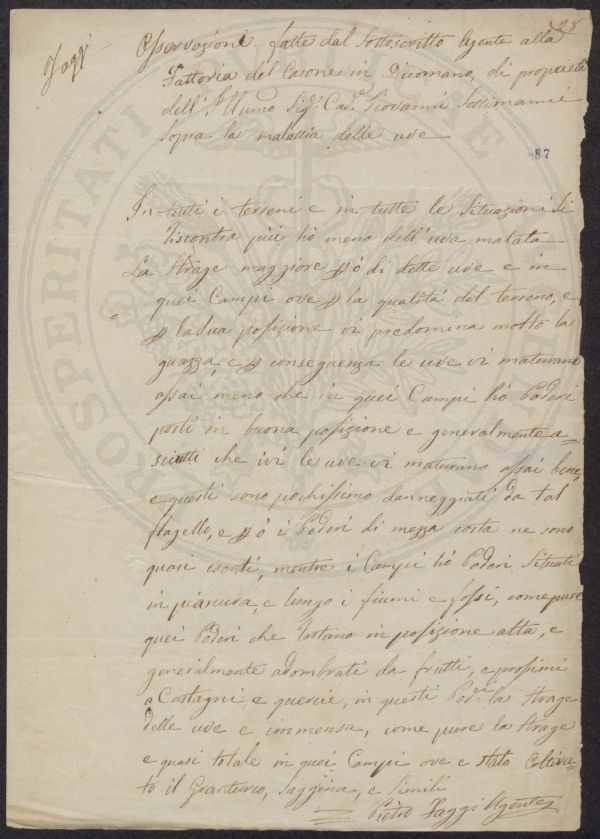 28
Faggi
Osservazioni fatte dal Sottoscritto Agente alla
Fattoria del Casone in Dicomano, di proprietà
dell'Illumo Sig.r Cav.r Giovanni
sopra la malattia delle uve
87
In tutti i terreni e in tutte le Situazioni Si
riscontra più hò meno dell'uva malata
La Strage maggiore però di dette uve e in
quei Campi ove per la qualità del terreno, e
per la sua posizione vi predomina molto la
guazza, e per conseguenza le uve vi maturano
assai meno che in quei Campi hò Poderi
posti in buona posizione e generalmente a=
sciutti che ivi le uve vi maturano assai bene,
e questi sono pochissimo danneggiati da tal
flagello, e però i Poderi di mezza costa ne sono
quasi esenti, mentre i Campi hò Poderi Situati
in pianura, e lungo i fiumi e fossi, come pure
quei Poderi che restano in posizione alta, e
generalmente adombrati da frutti, e prossimi
a Castagni e quercie, in questi Pod.i la Strage
delle uve e immensa, come pure la Strage
e quasi totale in quei Campi ove e stato Coltiva=
to il Granturco, Saggina, e Simili
Pietro Faggi Agente
PROSPERITATI PUBLICAE